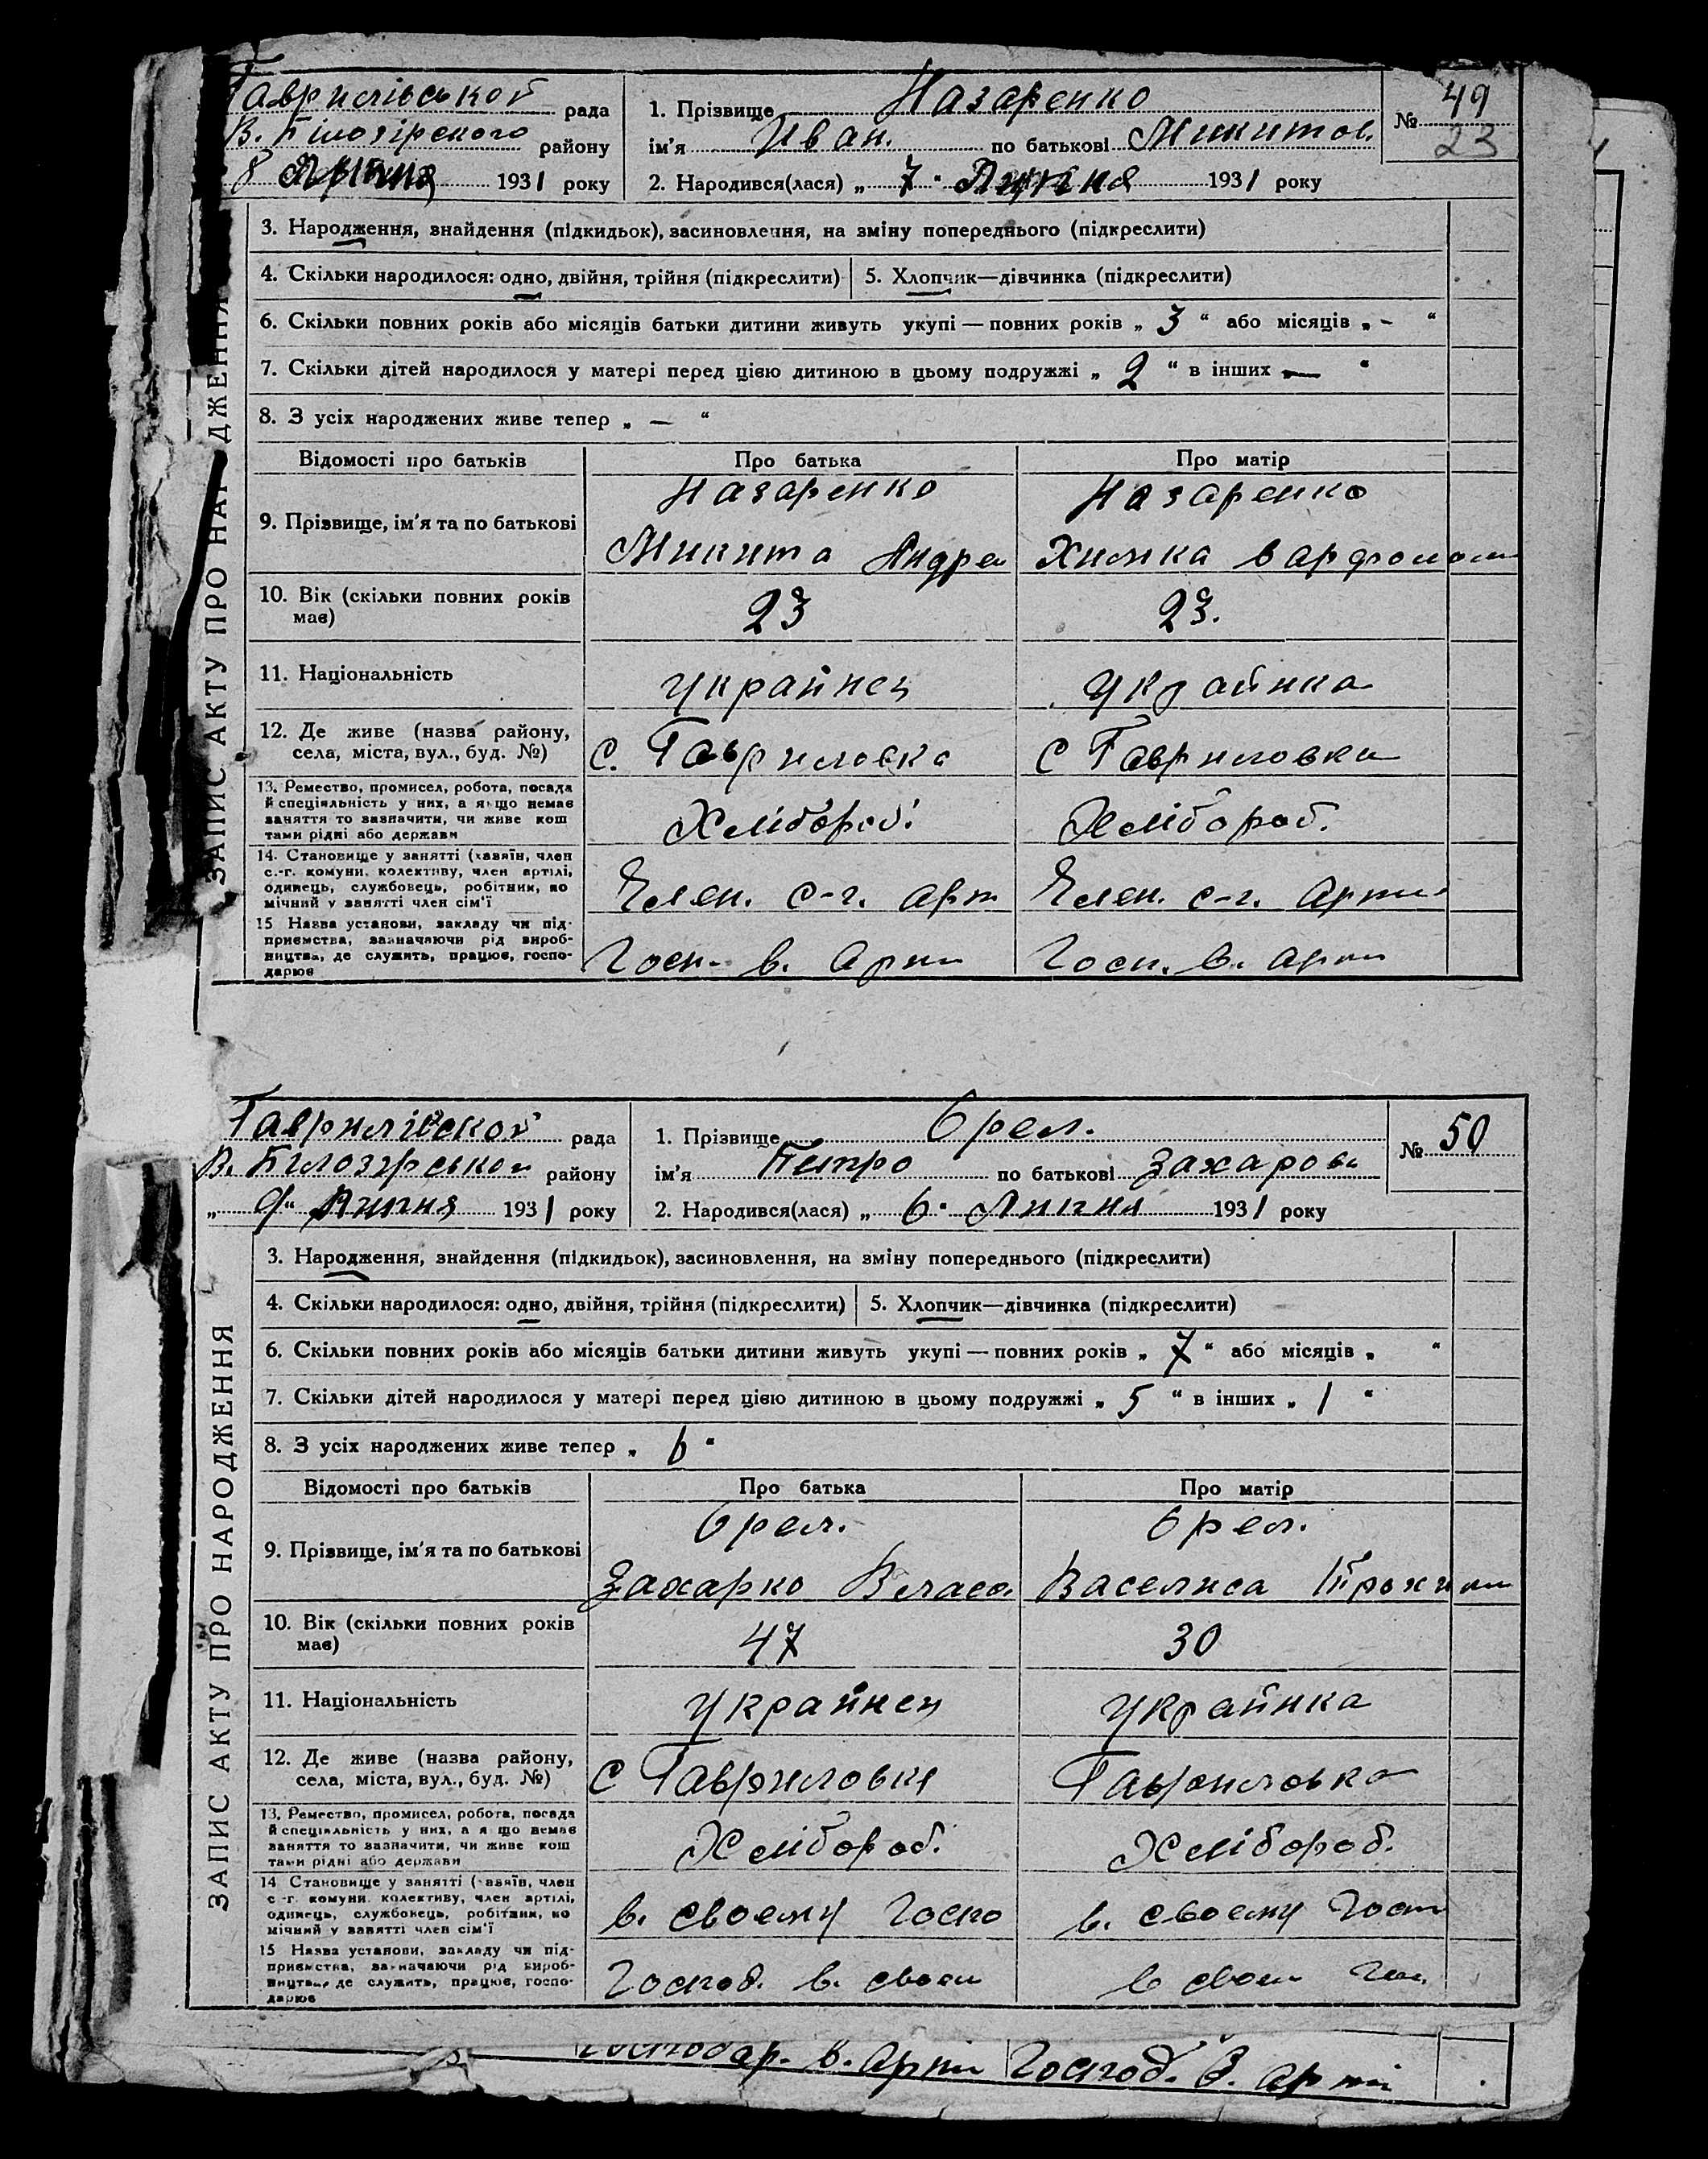 Гаврилівської рада
В. Білозірского району
8 Липня 1931 року
1. Прізвище Назаренко
ім'я Иван. по батькові Микитов.
2. Народився(лася) „ 7 " Липня 1931 року
№ 49
23
ЗАПИС АКТУ ПРО НАРОДЖЕННЯ
3. Народження, знайдення (підкидьок), засиновлення, на зміну попереднього (підкреслити)
4. Скільки народилося: одно, двійня, трійня (підкреслити) 5. Хлопчик—дівчинка (підкреслити)
6. Скільки повних років або місяців батьки дитини живуть укупі — повних років „ 3 “ або місяців „ - “
7. Скільки дітей народилося у матері перед цією дитиною в цьому подружжі „ 2 “ в інших „ — “
8. З усіх народжених живе тепер „ — “
Відомості про батьків Про батька Про матір
9. Прізвище, ім'я та по батькові
Назаренко Микита Андре
Назаренко Химка Варфолом
10. Вік (скільки повних років має) 23 23.
11. Національність Українец Українка
12. Де живе (назва району, села, міста, вул., буд. №) с. Гавриловка с Гавриловка
13. Ремество, промисел, робота, посада
й спеціяльність у них, а якщо немає
заняття то зазначити, чи живе кош
тами рідні або держави
Хлібороб. Хлібороб.
14. Становище у занятті (хазяїн, член
с.-г. комуни, колективу, член артілі,
одинець, службовець, робітник, по
мічний у занятті член сім'ї
Член. с-г. арт Член. с-г. арти
15 Назва установи, закладу чи під-
приємства, зазначаючи рід вироб-
ництва, де служить, працює, госпо-
дарює
Госп. в. Арти Госп. в. арти
Гаврилівской рада
В. Білозэрськои району
„ 9 “ Липня 1931 року
1. Прізвище Орел.
ім'я Петро по батькові Захарови
2. Народився(лася) „ 6 " Липня 1931 року
№ 50
ЗАПИС АКТУ ПРО НАРОДЖЕННЯ
3. Народження, знайдення (підкидьок), засиновлення, на зміну попереднього (підкреслити)
4. Скільки народилося: одно, двійня, трійня (підкреслити) 5. Хлопчик—дівчинка (підкреслити)
6. Скільки повних років або місяців батьки дитини живуть укупі — повних років „ 7 “ або місяців „ “
7. Скільки дітей народилося у матері перед цією дитиною в цьому подружжі „ 5 “ в інших „ 1 “
8. З усіх народжених живе тепер „ 6 “
Відомості про батьків Про батька Про матір
9. Прізвище, ім'я та по батькові
Орел. Захарко Власо
Орел. Васелиса Трохим
10. Вік (скільки повних років має) 47 30
11. Національність Українец Українка
12. Де живе (назва району, села, міста, вул., буд. №) с Гавриловки Гавриловка
13. Ремество, промисел, робота, посада
й спеціяльність у них, а якщо немає
заняття то зазначити, чи живе кош
тами рідні або держави
Хлібороб. Хлібороб.
14 Становище у занятті (хазяїн, член
с.-г. комуни, колективу, член артілі,
одинець, службовець, робітник, по
мічний у занятті член сім'ї
в. своему Госпо в. своему Госп
15 Назва установи, закладу чи під-
приємства, зазначаючи рід вироб-
ництва, де служить, працює, госпо-
дарює
Господ. в. своем в своем Гос.
Господар. в. Арти Господ. В. арті